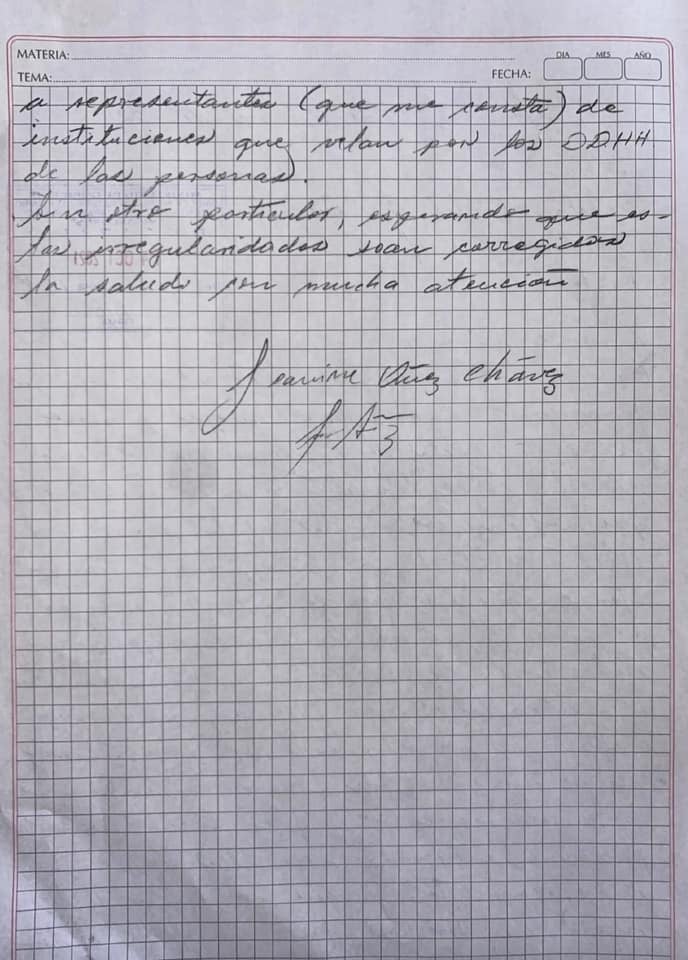 MATERIA:
DIA MES AÑO
TEMA: FECHA:
a representantes (que me consta) de
instituciones que velan por los DDHH
de las personas.
Sin otro particular, esperando que es-
tas irregularidades sean corregidas
la saludo con mucha atención
Jeanine Áñez Chávez